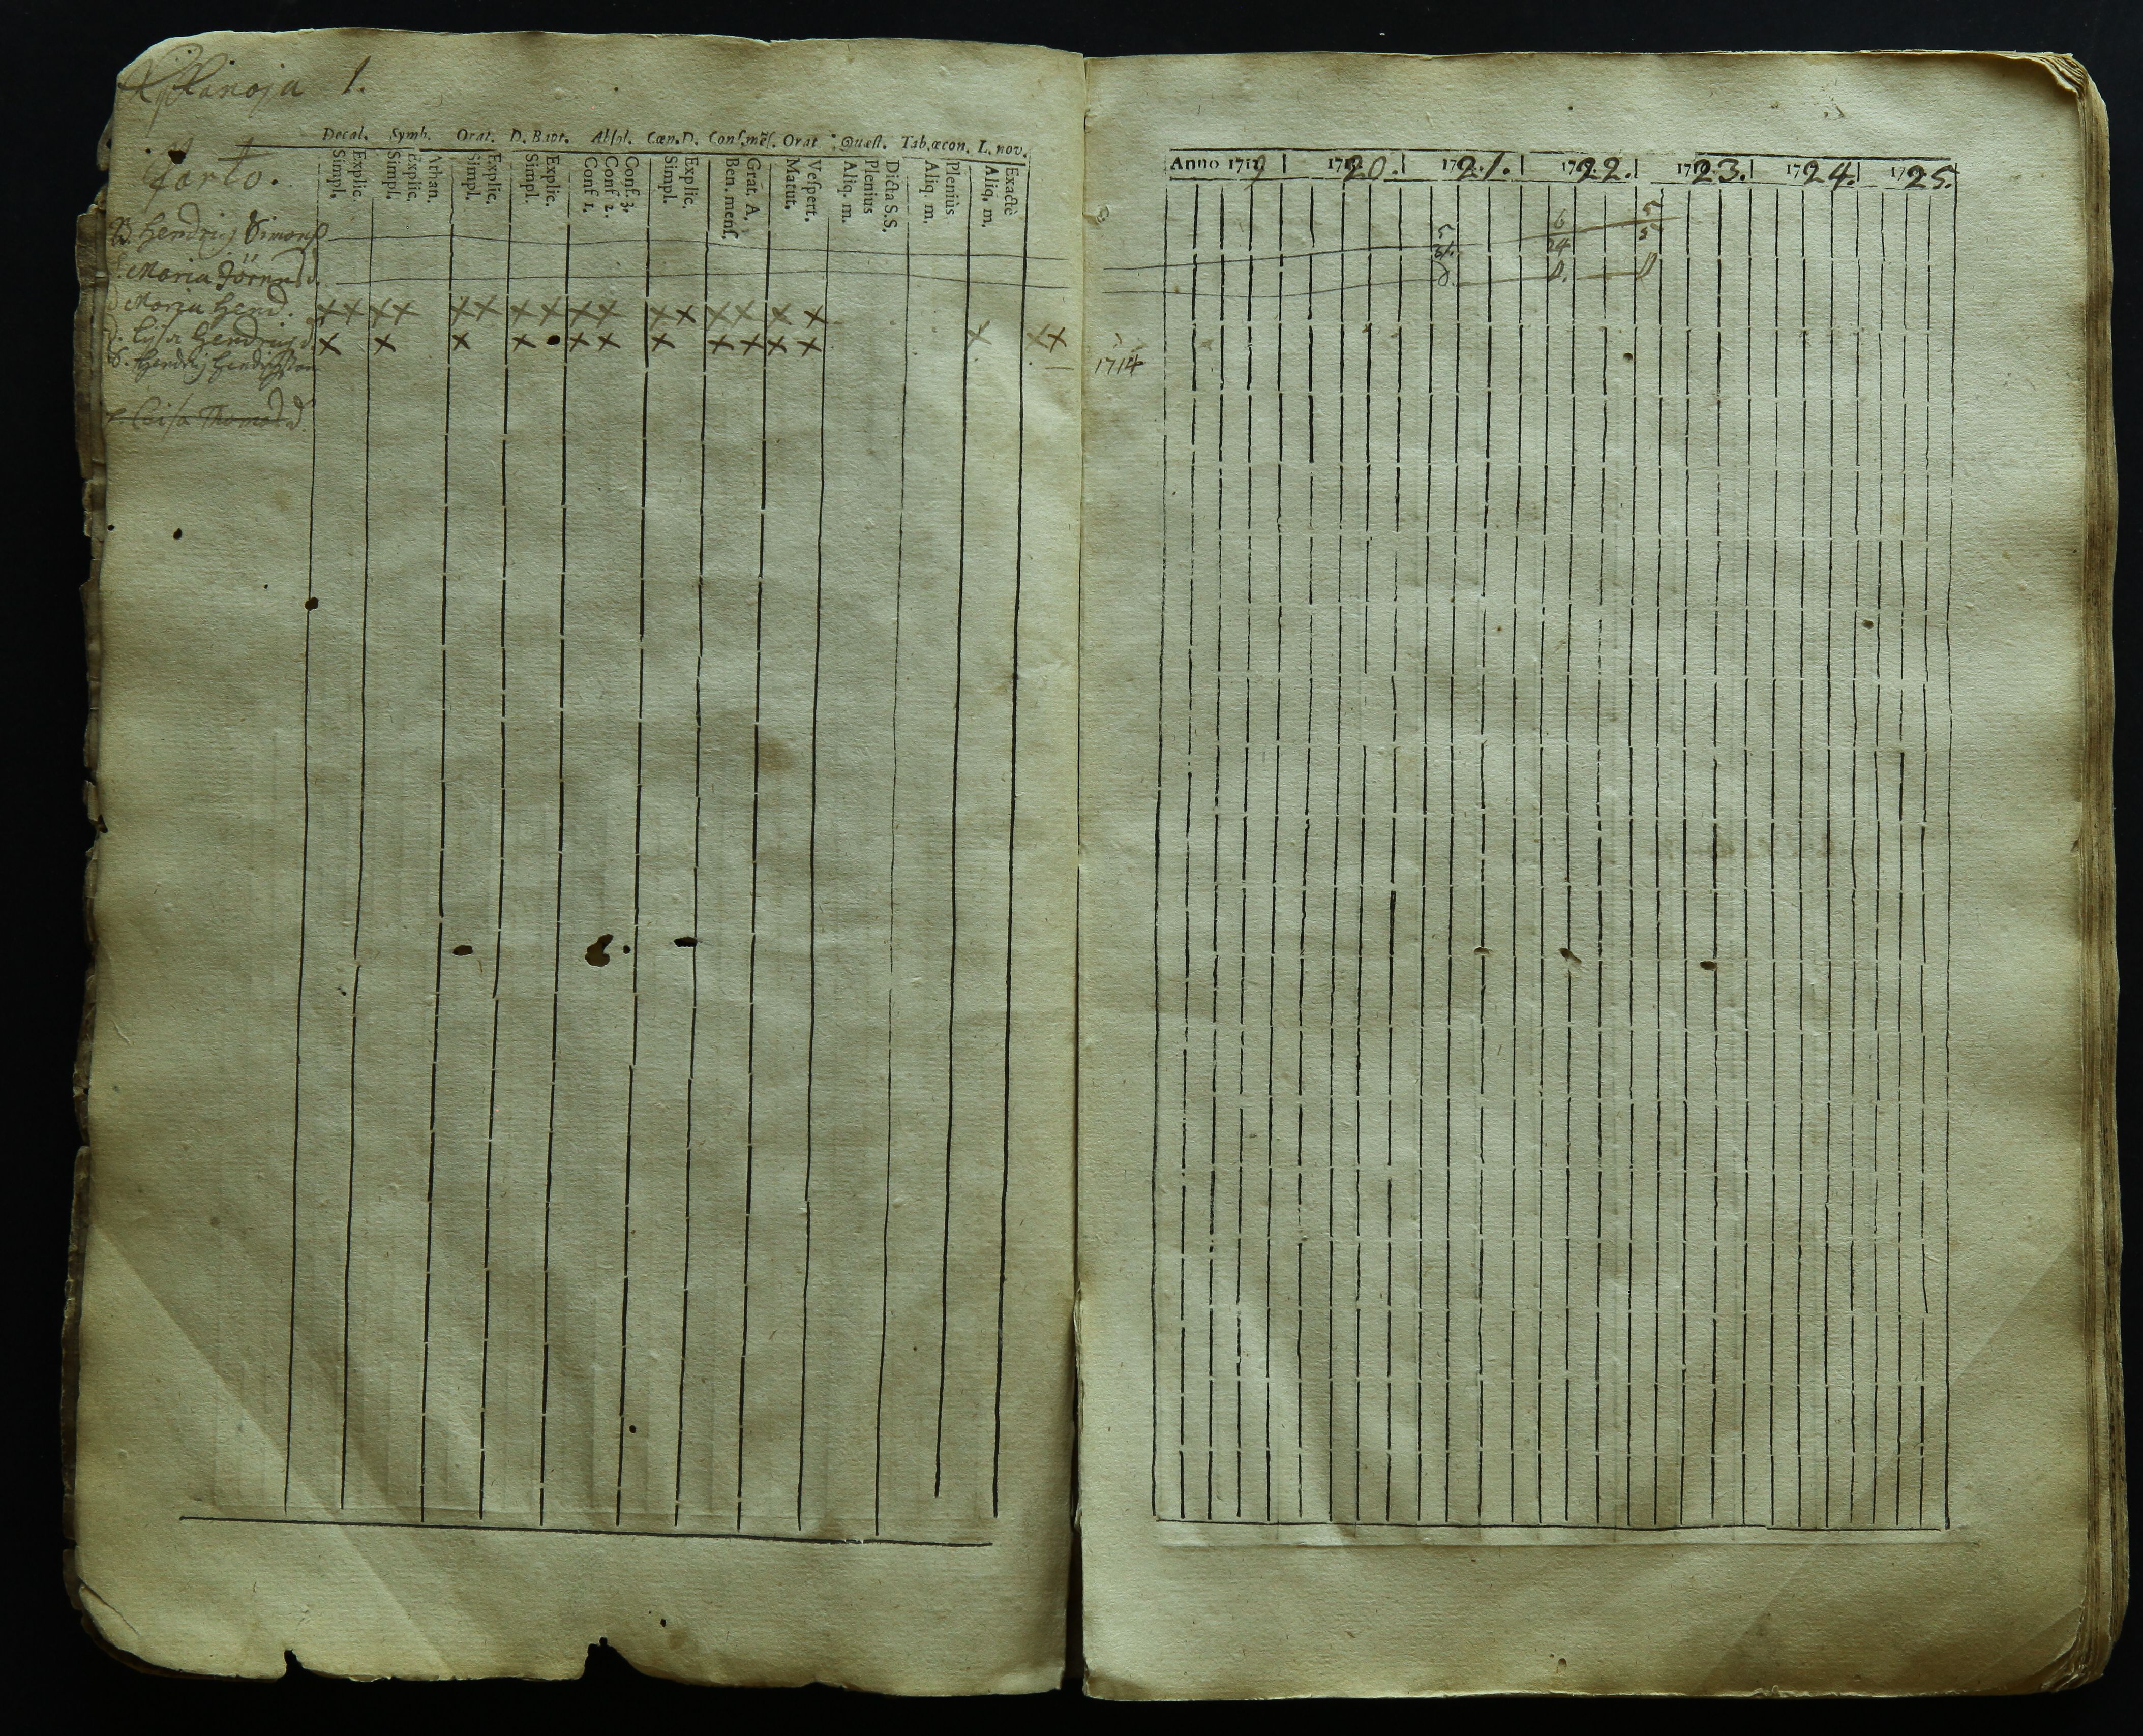 Kyllänoja 1.
Decal. Symb. Orat. D. Bapt. Absol. Cœn. D. Conf. mēs. Orat. Quæst. Tab. œcon. L. nov.
Simpl. Explic. Simpl. Explic. Athan. Simpl. Explic. Simpl. Explic. Conf 1. Conf 2. Conf 3. Simpl. Explic. Ben. mens. Grat. A. Matut. Vespert. Aliq. m. Plenius Dicta S.S. Aliq m. Pleniùs Aliq. m. Exactè
Torto.
B. Hendrij Simonss
Maria Jören d.
d Maria Hend. x x x x x x x x x x x x x x x x
d. Lisa Hendrij d. x x x x x x x x x x x x x x
S. Hendrij Hendrichsson
Caisa Thomæ d.
Anno 1719 1720. 1721. 1722. 1723. 1724. 1725.
5 6 5
24 5
1714